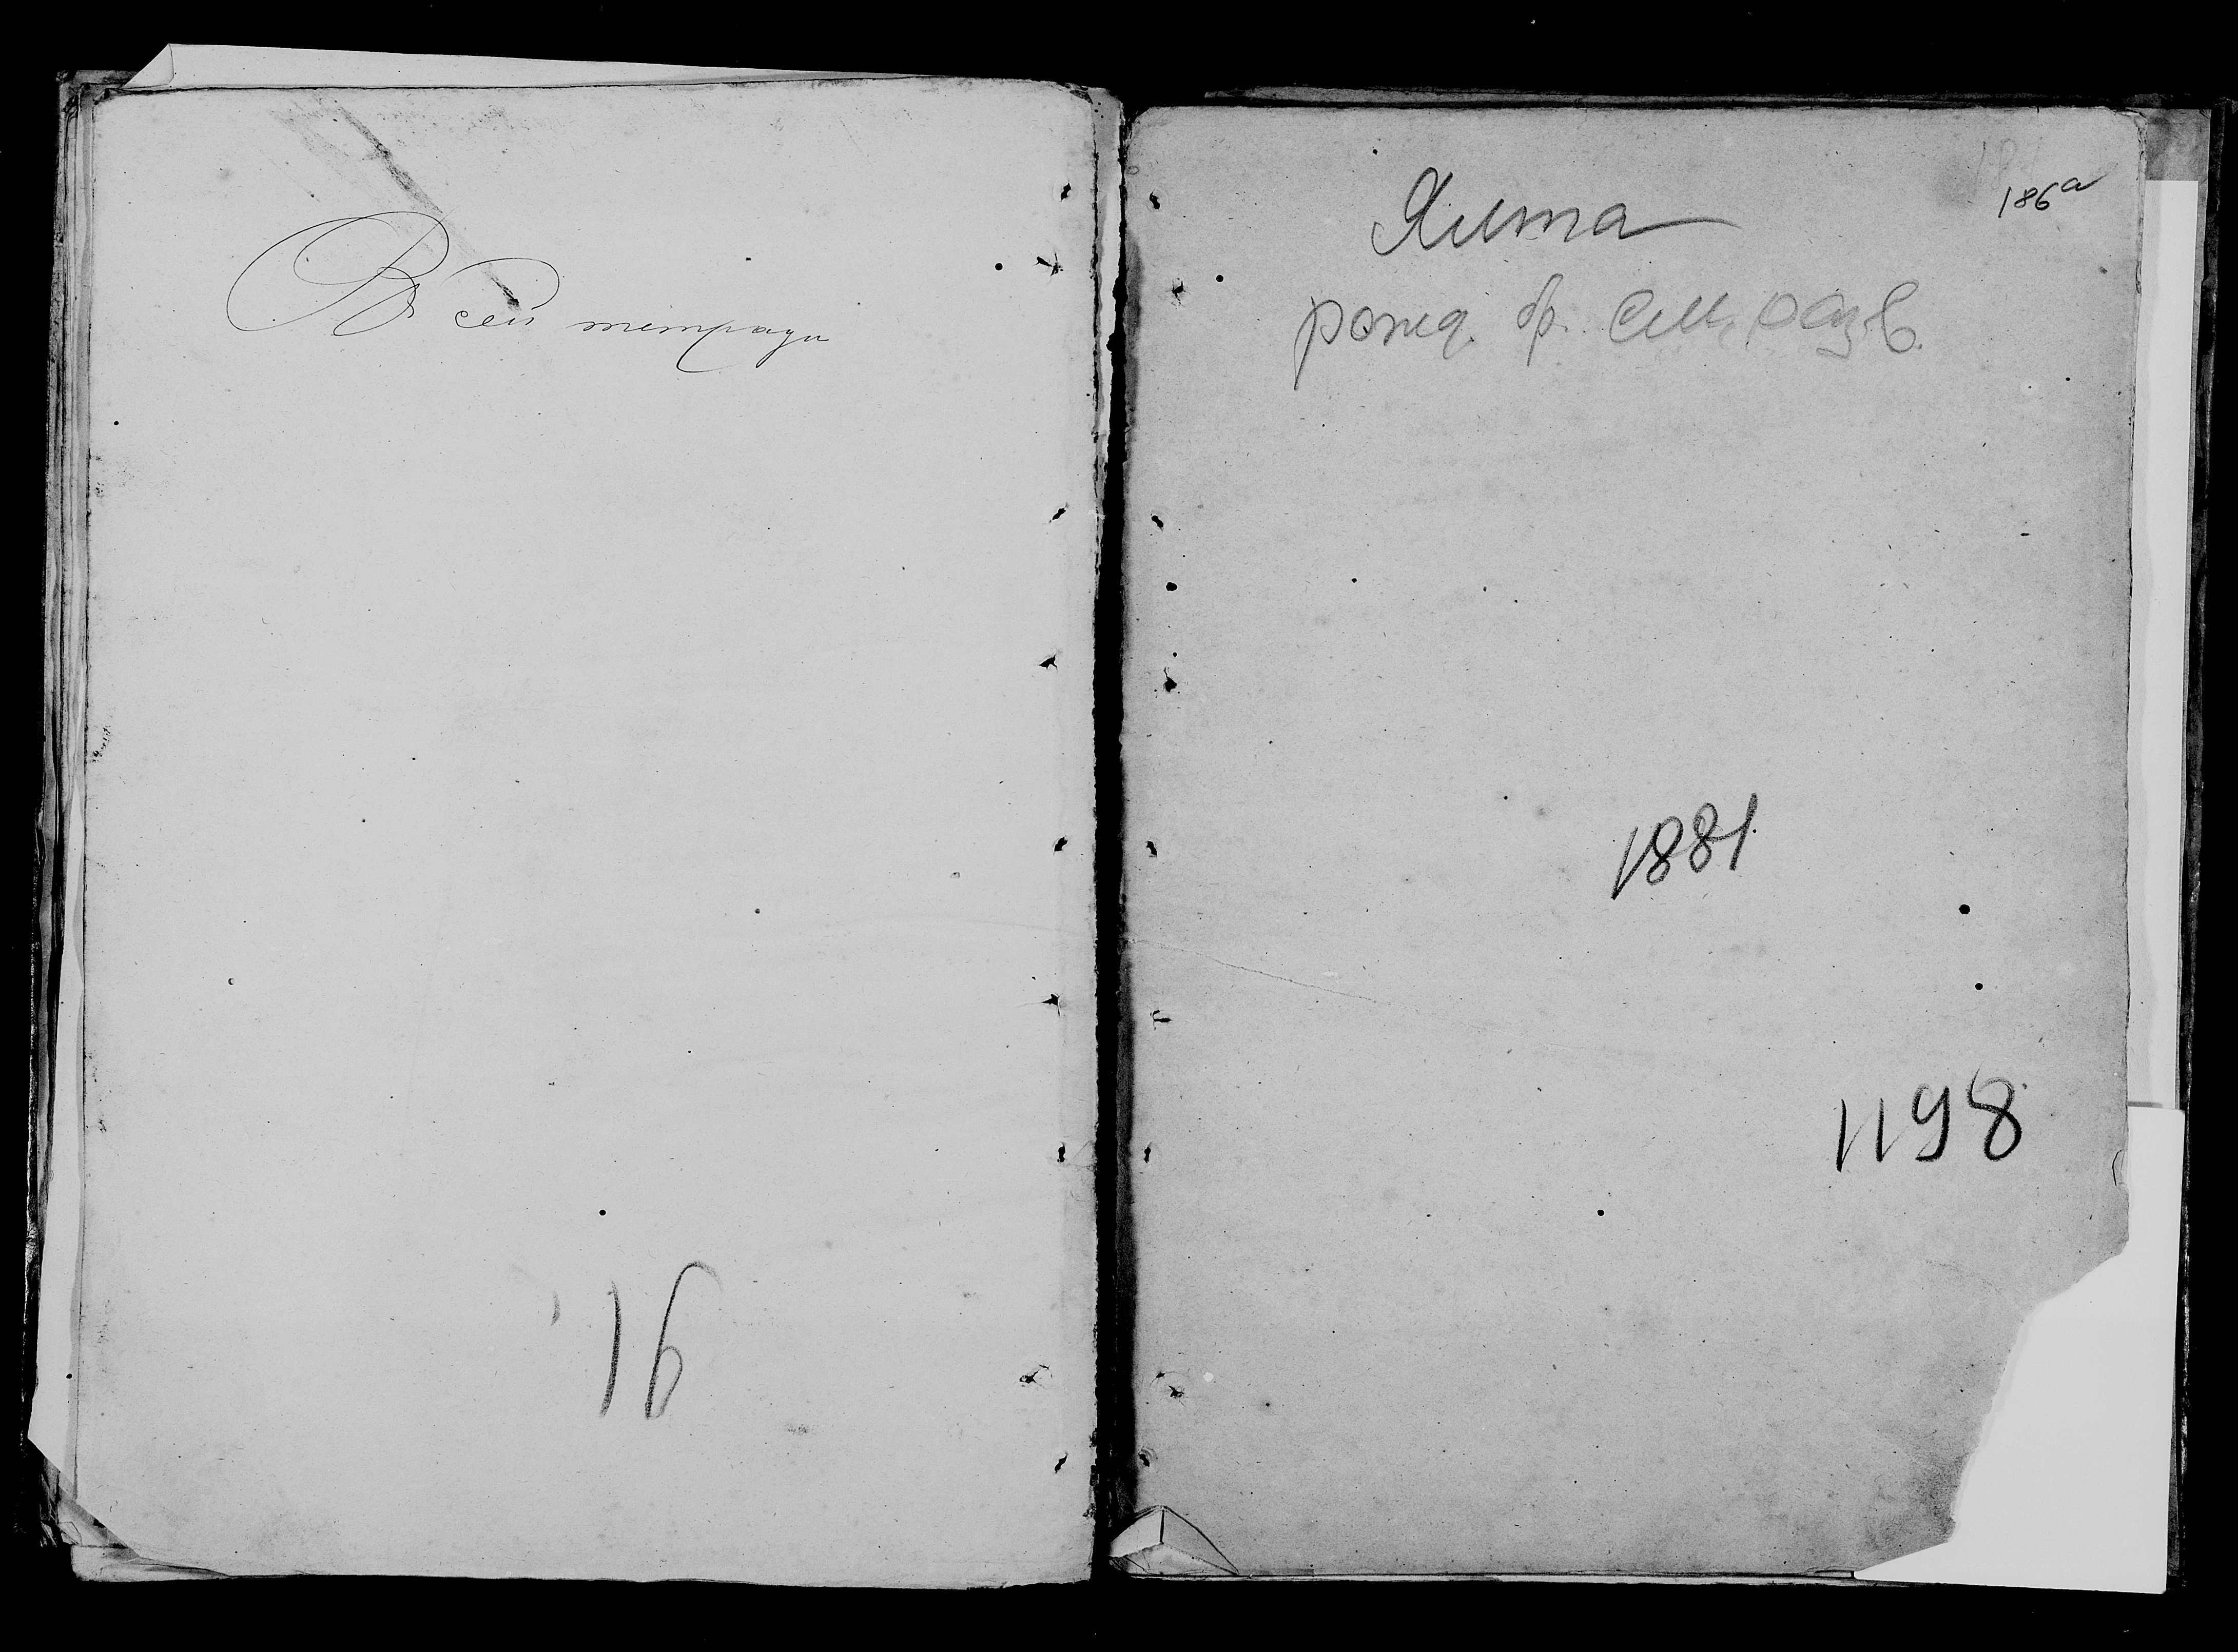 Въ сей тетради
16
186а
Ялта
рожд. бр. см. разв.
1881
1198